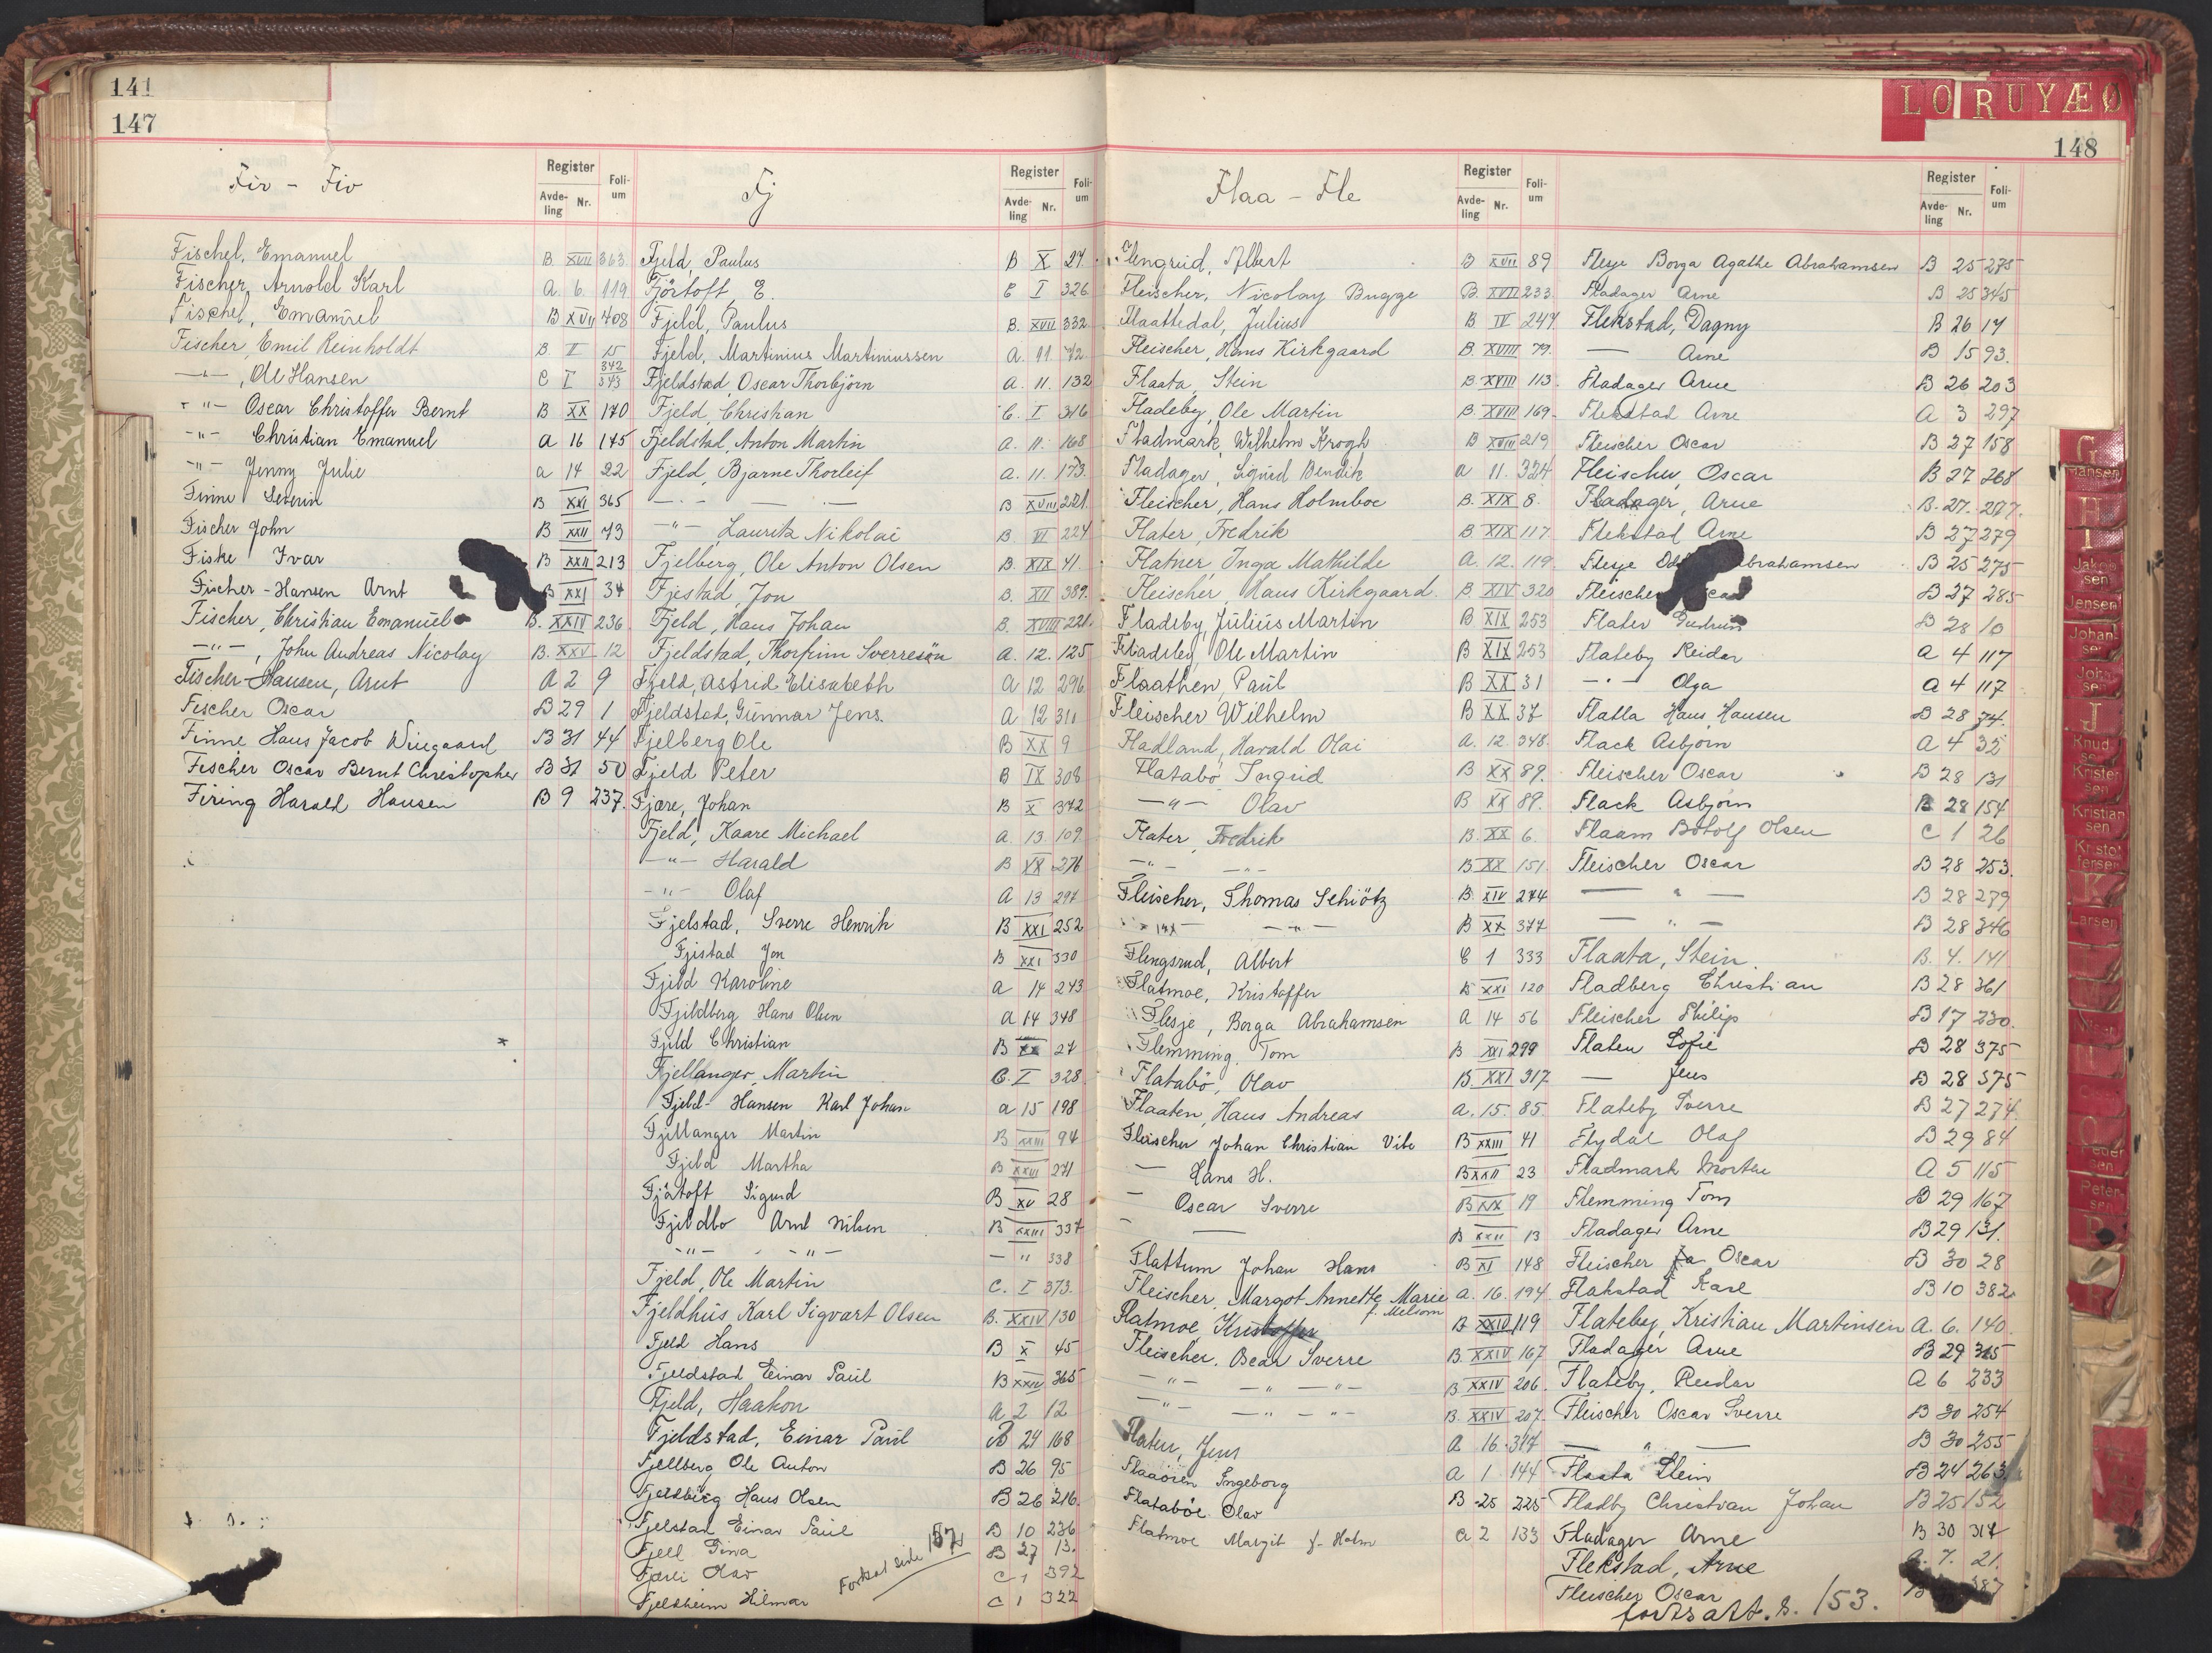 141
147
Register
Avde-ling Nr. Foli-um
Fischel, Emanuel B. XVII 363
Fischer, Arnold Karl A. 6. 119
Fischel, Emanuel B XVII 408
Fischer, Emil Reinholdt B. II 15
—"—, Ole Hansen C I 342 343
—"— Oscar Christoffer Bernt B XX 170
—"— Christian Emanuel a 16 145
—"— Jenny Julie a 14 22
Finne Severin B XXI 365
Fischer John B XXII 73
Fiske Ivar B XXII 213
Fischer-Hansen Arnt B XXI 34
Fischer, Christian Emanuel B. XXIV 236
—"—, John Andreas Nicolay B. XXV 12
Fischer-Hansen, Arnt A 2 9
Fischer Oscar B 29 1
Finne Hans Jacob Wiegaard B 31 44
Fischer Oscar Bernt Christopher B 31 50
Firing Harald Hansen B 9 237.
Fj
Register
Avde-ling Nr. Foli-um
Fjeld, Paulus B X 27
Fjörtoft, E. C I 326
Fjeld, Paulus B. XVII 332
Fjeld, Martinius Martiniussen A. 11. 72
Fjeldstad, Oscar Thorbjørn a. 11. 132
Fjeld, Christian C. I 316
Fjeldstad, Anton Martin a. 11. 168
Fjeld, Bjarne Thorleif a. 11. 173.
— " — — " — B XVIII 221
—"— Lauritz Nikolai B VI 224
Fjelberg, Ole Anton Olsen B. XIX 41.
Fjestad, Jon B. XII 389.
Fjeld, Hans Johan B. XVIII 221.
Fjeldstad, Thorfinn Sverresön a. 12. 125
Fjeld, Astrid Elisabeth a 12 296
Fjeldstad, Gunnar Jens. A 12 311
Fjelberg Ole B XX 9
Fjeld Peter B IX 308
Fjære, Johan B X 372
Fjeld, Kaare Michael a. 13 109
—"— Harald B XX 276
—"— Olaf A 13 297
Fjelstad, Sverre Henrik B XXI 252
Fjistad Jon B XXI 330
Fjeld Karoline a 14 243
Fjeldberg Hans Olsen a 14 348
Fjeld Christian B XX 27
Fjellanger, Martin C. I 328
Fjeld-Hansen Karl Johan a 15 198
Fjellanger Martin B XXIII 94
Fjeld Martha B XXVI 271
Fjåtoft Sigurd B XV 28
Fjeldbo Arnt Nilsen B XXIII 337
—"— —"— — " 338
Fjeld, Ole Martin C. I 373.
Fjeldhus Karl Sigvart Olsen B. XXIV 130
Fjeld Hans B X 45
Fjeldstad Einar Paul B XXIV 365
Fjeld, Haakon a 2 12
Fjeldstad, Einar Paul B 24 168
Fjellberg Ole Anton B 26 95
Fjeldberg Hans Olsen B 26 216.
Fjelstad Einar Paul B 10 236
Fjell Gina B 27 13.
Fjærli Olav C 1 392
Fjeldheim Hilmar C 1 322
Fortsat side 157
LO RUYÆØ
148
Flaa – Fle
Register
Avde-ling Nr. Foli-um
Flengrud, Albert B XVII 89
Fleischer, Nicolay Bugge B. XVII 233
Flaattedal, Julius B IV 247
Fleischer, Hans Kirkgaard B. XVIII 79.
Flaata, Stein B XVIII 113.
Fladeby, Ole Martin B. XVIII 169.
Fladmark, Wilhelm Krogh B XVIII 219
Fladager, Sigurd Bendik a 11. 324
Fleischer, Hans Holmboe B. XIX 8.
Flater, Fredrik B XIX 117.
Flatner, Inga Mathilde A. 12. 119.
Fleischer, Hans Kirkgaard. B. XIV 320
Fladeby, Julius Martin B XIX 253
Fladeby, Ole Martin B XIX 253
Flaathen, Paul B XX 31
Fleischer Wilhelm B XX 37
Fladland, Harald Olai a. 12. 348.
Flatabø Ingrid B XX 89.
—"— Olav B XX 89.
Flater, Fredrik B. XX 6.
—"— —"— B XX 151.
Fleischer, Thomas Schiötz B. XIV 274
—"— —"— B XX 377
Flengsrud, Albert C 1 333
Flatmoe, Kristoffer B XXI 120
Flesje, Borga Abrahamsen A 14 56
Flemming, Tom B XXI 299
Flatabö, Olav B. XXI 317
Flaaten, Hans Andreas a. 15. 85.
Fleischer Johan Christian Vibe B XXIII 41
— Hans H. B XXII 23
— Oscar Sverre B XIX 19
— — B XXII 13
Flattum Johan Hans B XI 148
Fleischer, Margot Annette Marie f. Melsom a. 16. 194
Flatmoe, Kristoffer B XXIV 119
Fleischer. Oscar Sverre B. XXIV 167
—"— —"— —"— B XXIV 206.
—"— —"— —"— B. XXIV 207.
Flaten, Jens a 16 317
Flaaöien Ingeborg a 1 144
Flatabøe Olav B 25 225
Flatmoe Margit f. Holm a 2 133
Register
Avde-ling Nr. Foli-um
Flesje Borga Agathe Abrahamsen B 25 275
Fladager Arne B 25 345
Flekstad, Dagny B 26 17
— Arne B 15 93.
Fladager Arne B 26 203
Flekstad Arne A 3 297
Fleischer Oscar B 27 158
Fleischer, Oscar B 27 268
Fladager, Arne B. 27. 277.
Flekstad Arne B 27 279
Flesje Abrahamsen B 25 275
Fleischer B 27 285
Flater Gudrun B 28 10
Flateby Reidar a 4 117
—"— Olga a 4 117
Flatla Hans Hansen B 28 74.
Flack Asbjørn A 4 32
Fleischer Oscar B 28 131
Flack Asbjørn B 28 154
Flaam Botolf Olsen C 1 26
Fleischer Oscar B 28 253.
— " — B 28 279
— " — B 28 346
Flaata, Stein B. 4. 141
Fladberg Christian B 28 361
Fleischer Philip B 17 230.
Flaten Sofie B 28 375
— Jens B 28 375
Flateby Sverre B 27 274
Flydal Olaf B 29 84
Fladmark Morten A 5 115
Flemming Tom B 29 167
Fladager Arne B 29 131.
Fleischer Oscar B 30 28
Flakstad Karl B 10 382
Flateby, Kristian Martinsen A. 6. 140.
Fladager Arne B 29 315
Flateby, Reidar A 6 233
Fleischer Oscar Sverre B 30 254
— " — B 30 255
Flaata Stein B 24 263
Fladby Christian Johan B 25 152
Fladager Arne B 30 317
Flekstad, Arne 7. 21.
Fleischer Oscar B 387
fortsatt. s. 153.
G
Hansen
H
I
Jakobsen
Jensen
Johansen
J
Knudsen
Kristiansen
Kristoffersen
K
Larsen
Pedersen
Petersen